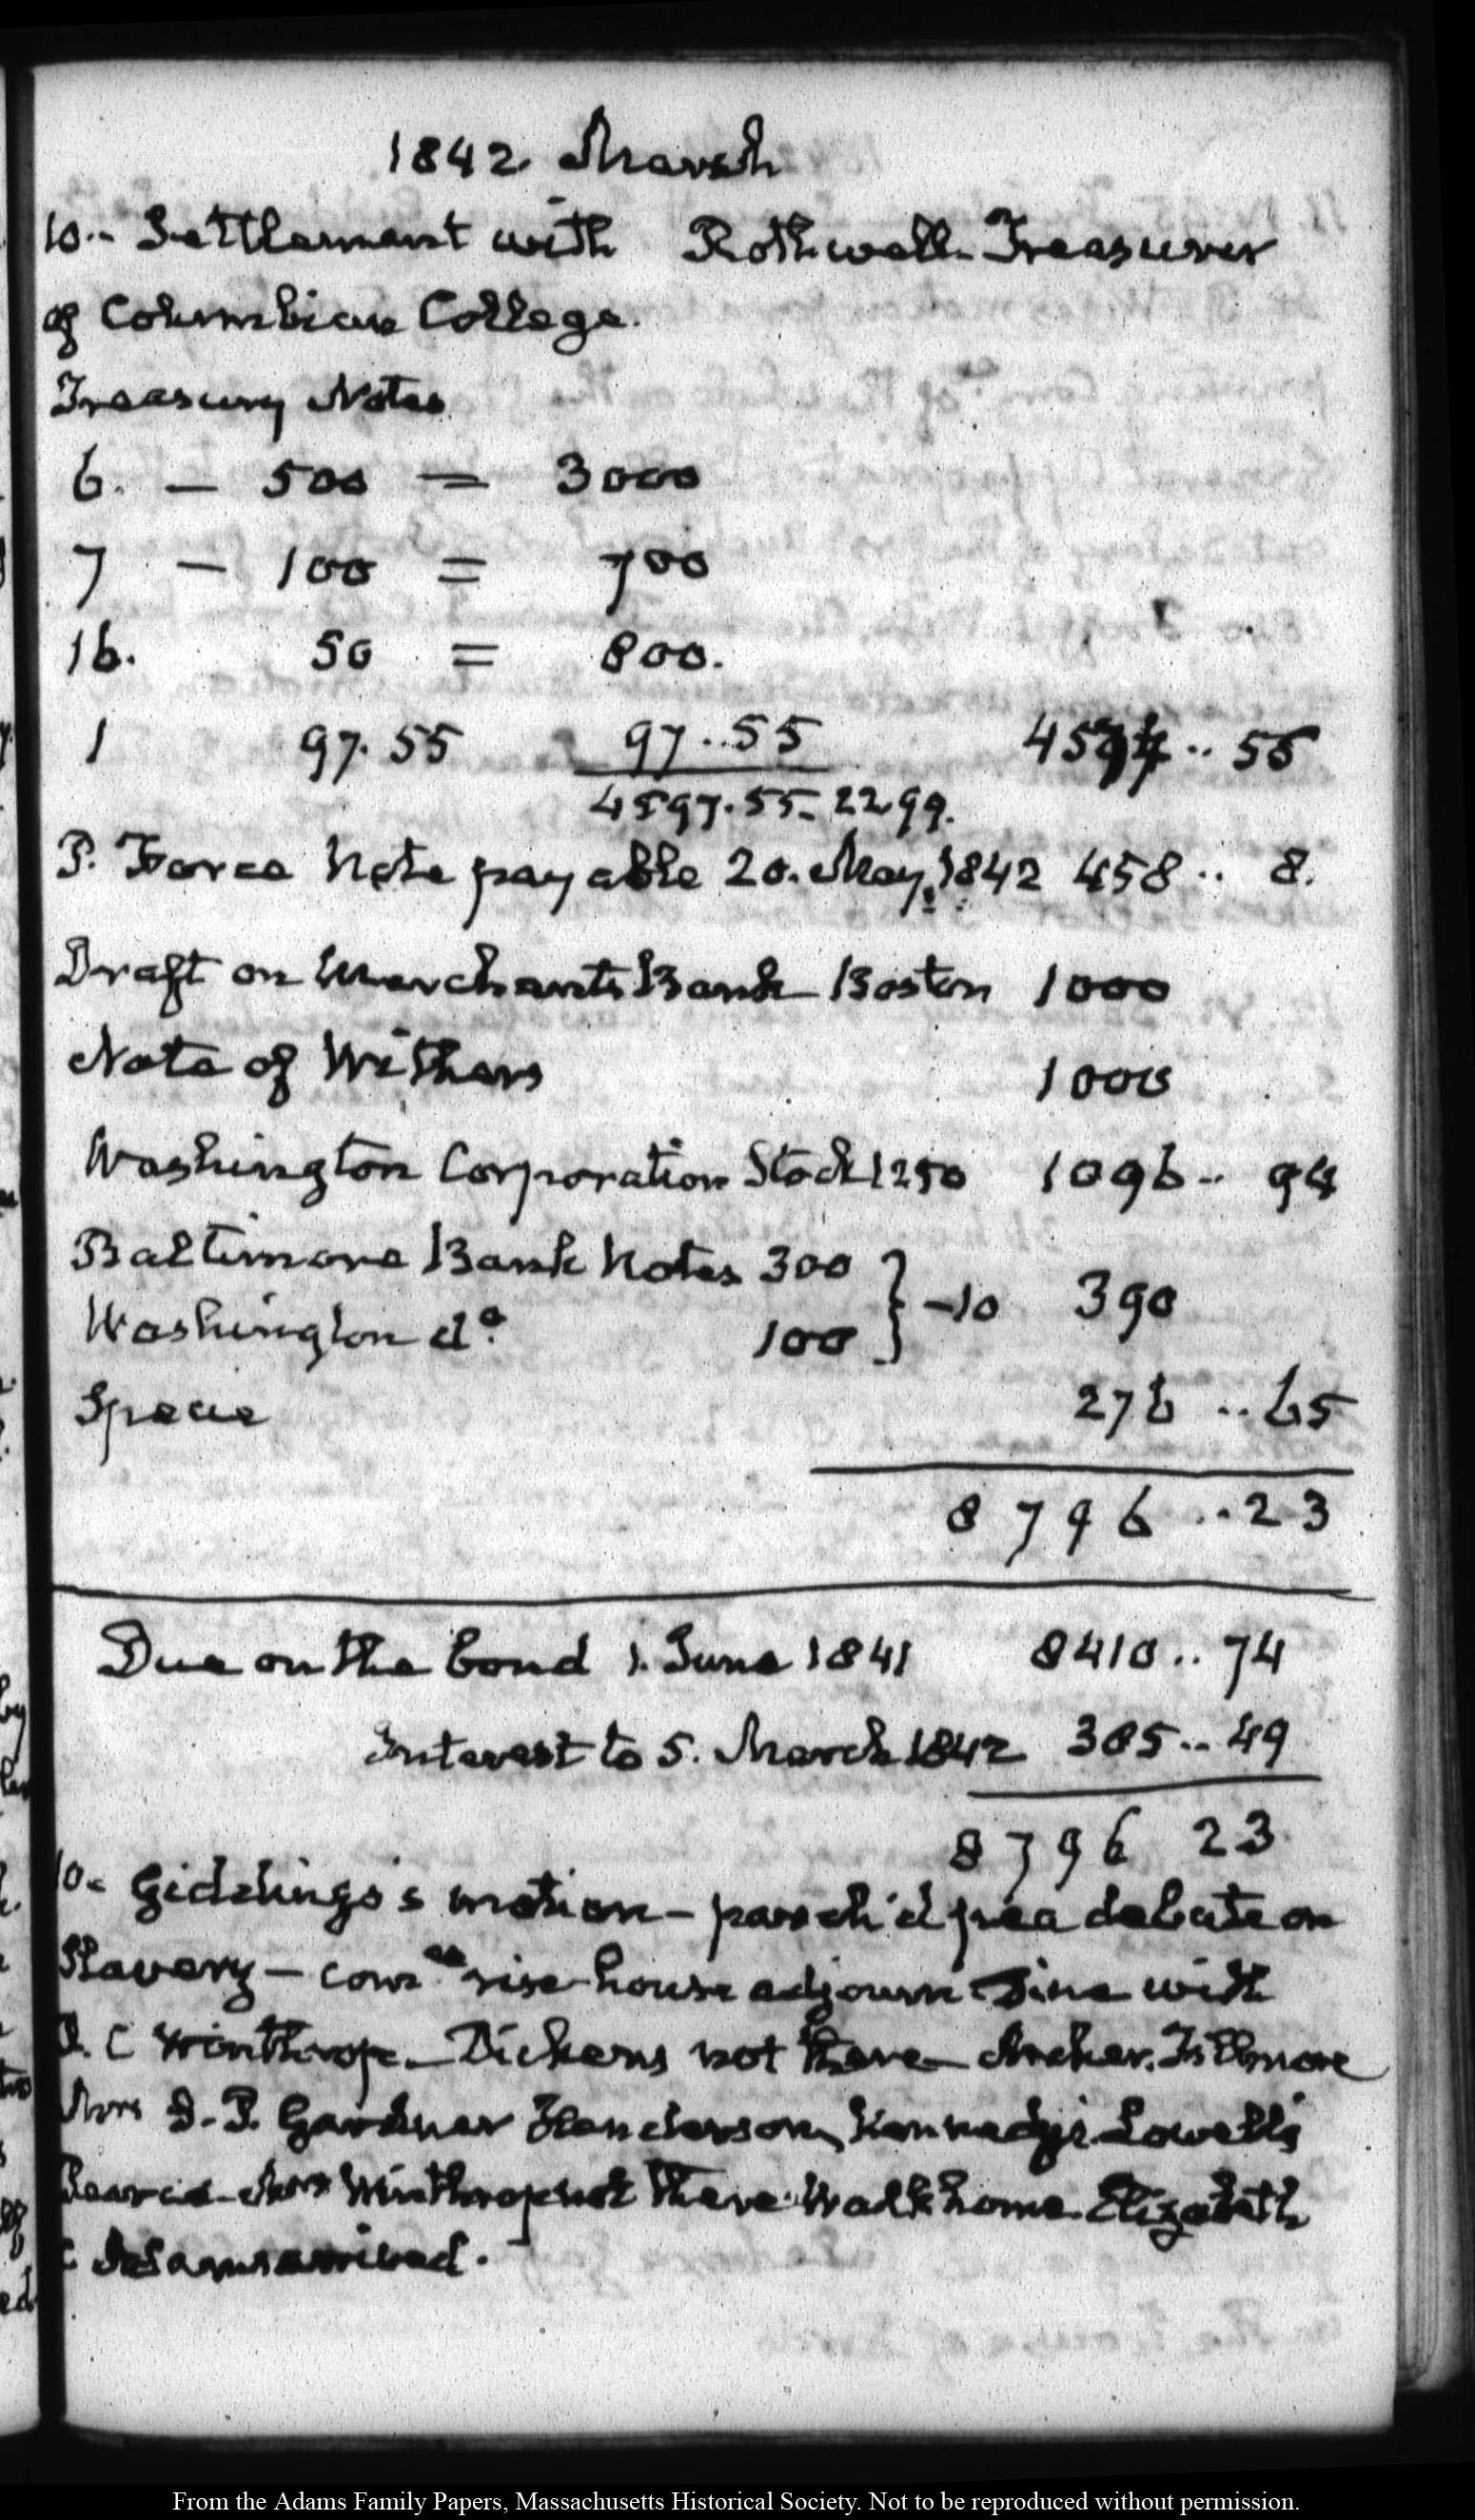 1842. March
10.- Settlement with Rothwell- Treasurer
of Columbian College.
Treasury Notes
6. — 500 = 3000
7 — 100 = 700
16. 50 = 800.
1 97.55 97..55 4574..56
4597.55- 22.99.
P. Force Note payable 20. May. 1842 458.. 8.
Draft on Merchants Bank Boston 1000
Note of Withers 1000
Washington Corporation Stock 1250 1096.. 94
Baltimore Bank Notes 300 } -10 390
Washington do. 100
Specie 276..65
8796..23
Due on the bond 1. June 1841 8410..74
Interest to 5. March 1842 385..49
8796 23
10- Giddings's motion- debate on
Slavery— comee rise- house adjourn- Dine with
R. C Winthrop- Dickens not there- Archer. Fillmore
Mrs J. P. Gardner Henderson, Kennedy. Lowells
Pearce- Mrs Winthrop not there. Walk home. Elizabeth
arrived.
From the Adams Family Papers, Massachusetts Historical Society. Not to be reproduced without permission.